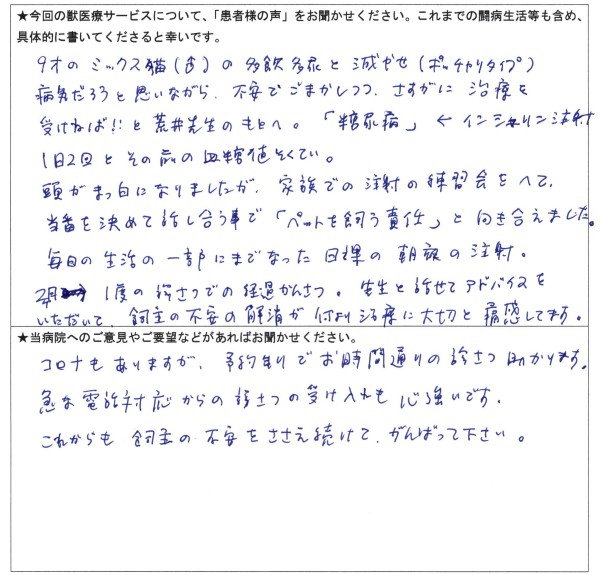 ★今回の獣医療サービスについて、「患者様の声」をお聞かせください。これまでの闘病生活等も含め、
具体的に書いてくださると幸いです。
9才のミックス猫(♂)の多飲多尿と減やせ(ポッチャリタイプ)
病気だろうと思いながら、不安でごまかしつつ、さすがに治療を
受けねば!!と荒井先生のもとへ。「糖尿病」←インシュリン注射
1日2回とその前の血糖値そくてい。
頭がまっ白になりましたが、家族での注射の練習会をへて、
当番を決めて話し合う事で「ペットを飼う責任」と向き合えました。
毎日の生活の一部にまでなった日課の朝晩の注射。
1度の診さつでの経過かんさつ。先生と話せてアドバイスを
いただいて、飼主の不安の解消が何より治療に大切と痛感してます。
★当病院へのご意見やご要望などがあればお聞かせください。
コロナもありますが、予約制りでお時間通りの診さつ助かります。
急な電話対応からの診さつの受け入れも心強いです。
これからも飼主の不安をささえ続けて、がんばって下さい。